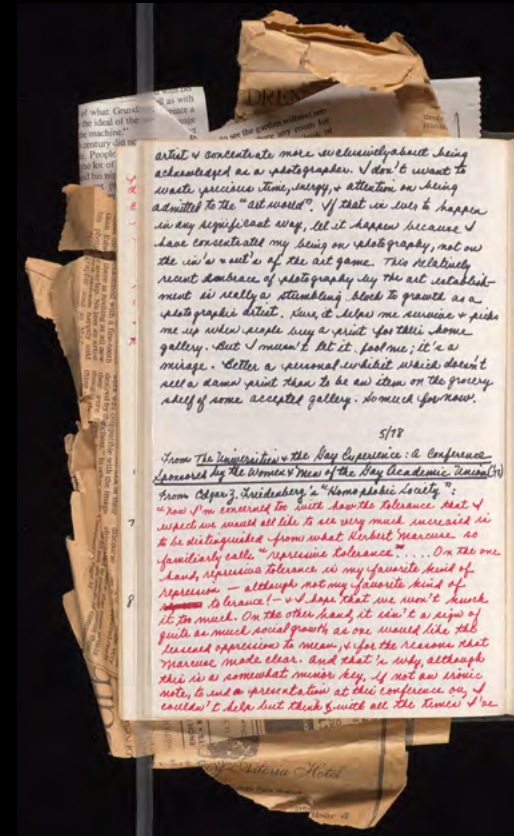 of what Grund
the ideal of the
the machine."
century did no
e. People
he lot of
nd his nig
DREX
to see the garden without see-
artist & concentrate more exclusively about being
acknowledged as a photographer. I don't want to
waste precious time, energy, & attention on being
admitted to the "art world". If that is ever to happen
in any significant way, let it happen because I
have concentrated my being on photography, not on
the in's & out's of the art game. This relatively
recent embrace of photography by the art establish-
ment is really a stumbling block to growth as a
photographic artist. Sure, it helps me survive & picks
me up when people buy a print for their home
gallery. But I musn't let it fool me; it's a
mirage. Better a personal exhibit which doesn't
sell a damn print than to be an item on the grocery
shelf of some accepted gallery. So much for now.
5/78
From The Universities & the Gay Experience: A Conference
Sponsored by the Women & Men of the Gay Academic Union
From Edgar Z. Freidenberg's "Homophobic Society":
"now I'm concerned too with how the tolerance that I
expect we would all like to see very much increased is
to be distinguished from what Herbert Marcuse so
familiarly calls "repressive tolerance."..... On the one
hand, repressive tolerance is my favorite kind of
repression — although not my favorite kind of
tolerance! — & I hope that we won't knock
it too much. On the other hand, it isn't a sign of
quite as much social growth as one would like the
lessened oppression to mean, & for the reasons that
Marcuse made clear. And that's why, although
this is a somewhat minor key, if not an ironic
note, to end a presentation at this conference on, I
couldn't help but think with all the times I've
7
8
Astoria Hotel